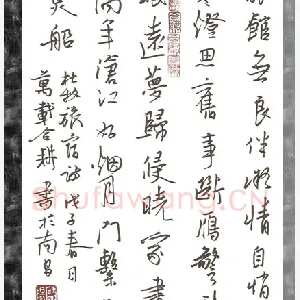 旅館無良伴凝情自悄
燈思舊事斷鴈警
眠遠夢歸侵曉家書
隔年滄江好烟月門繫
魚船
杜牧旅宿詩戊子春月
萬載合耕書於南昌
Shufawang.CN